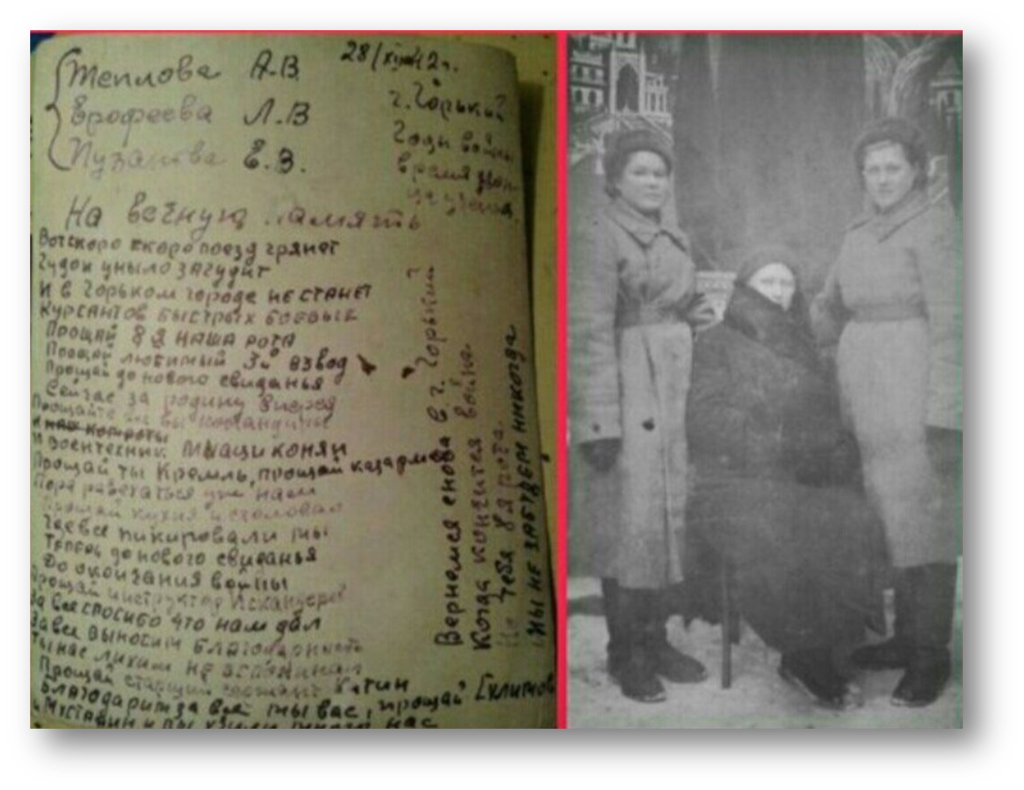 Теплова А.В.
Ерофеева Л.В
Пузанова Е.В.
28/XII 42г.
г. Горький
Годы войны
время
На вечную память
Вот скоро скоро поезд грянет
Гудок уныло загудит
И в Горьком городе не станет
Курсантов быстрых боевые
Прощай 8я наша рота
Прощай любимый 3й взвод
Прощай до нового свиданья
Сейчас за родину вперед
Прощайте все вы командиры
И воентехник Мнацаконян
Прощай ты Кремль, прощай казарма
Пора разъехаться уже нам
Прощай кухня и столовая
Где все пикировали мы
Теперь до нового свиданья
До окончания войны
Прощай инструктор Искандеров
За все спосибо что нам дал
За все выносим благодарность
Ты нас лихим не вспоминай
Прощай старший сержант Катин
Благодарим за всё мы вас, прощай
нас
Вернемся снова в г. Горький
Когда кончится война.
Но тебя 8я рота.
Мы не забудем никогда